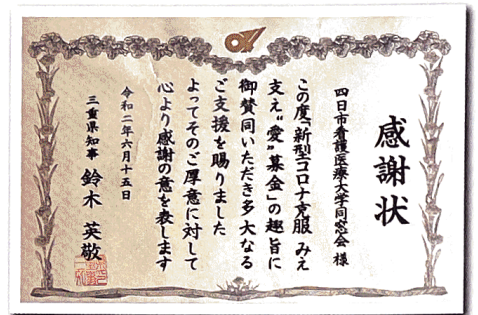 感謝状
四日市看護医療大学同窓会 様
この度「新型コロナ克服 みえ
支え"愛"募金」の趣旨に
御賛同いただき多大なる
ご支援を賜りました
よってそのご厚意に対して
心より感謝の意を表します
令和二年六月十五日
三重県知事 鈴木 英敬